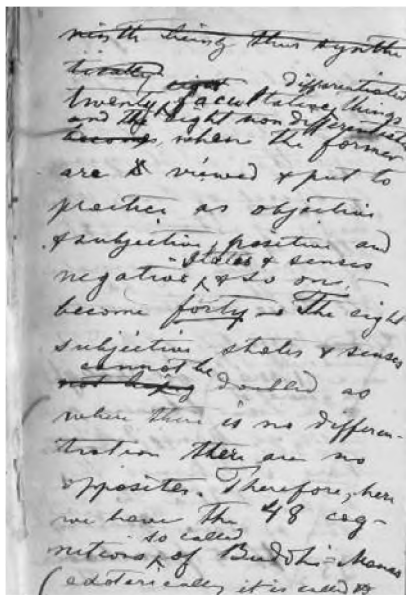 ninth being thus synthe
tically eight differentiated
twenty facultative things
and the eight non differentiated
become, when the former
are & viewed & put to
practice as objective
& subjective, positive and
negative states & senses
& so on,
become forty — The eight
subjective states & senses
not being cannot be doubled as
where there is no differen-
tiation there are no
opposites. Therefore, here
we have the 48 cog-
nitions, so called of Buddhi-Manas
(exoterically it is called